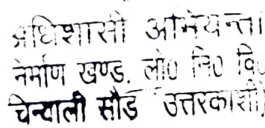 अधिशासी अभियन्ता
निर्माण खण्ड, लो0 नि0 वि0
चिन्याली सौड़ उत्तरकाशी)